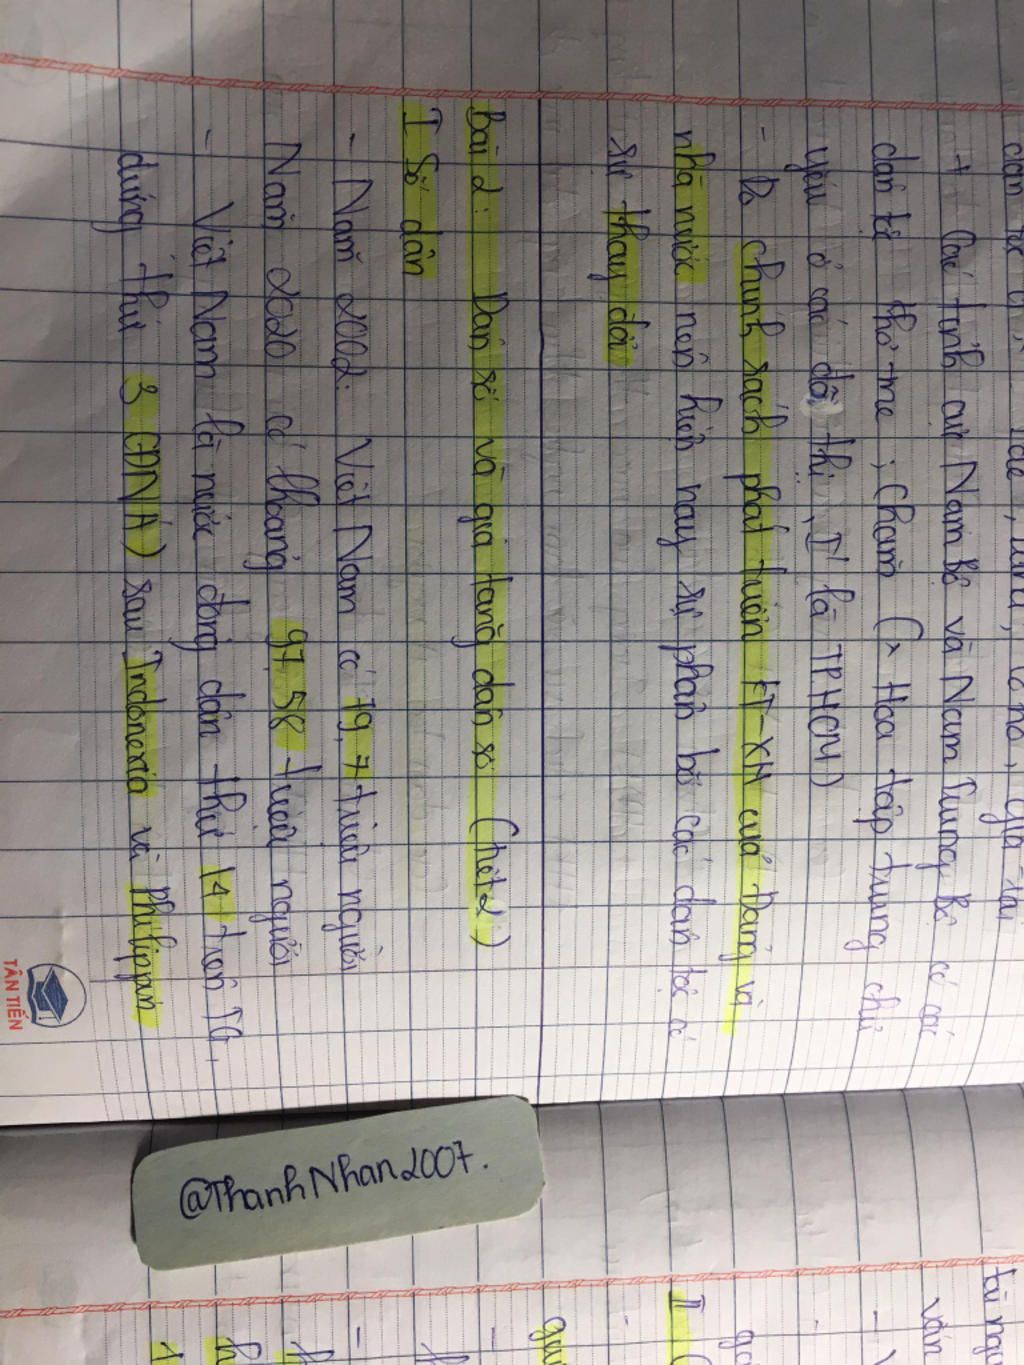 + Các tỉnh cực Nam Bộ và Nam Trung Bộ có các
dân tộ Khơ-me, Chăm (× Hoa tập trung chủ
yếu ở các đô thị, I' là TPHCM)
- Do chính sách phát triển KT-XH của Đảng và
nhà nước nên hiện nay sự phân bố các dân tộc có
sự thay đổi
Bài 2: Dân số và gia tăng dân số (tiết 2)
I Số dân
- Năm 2002: Việt Nam có 79,7 triệu người
Năm 2020 có khoảng 97,58 triệu người
- Việt Nam là nước đông dân thứ 14 trên TG,
đứng thứ 3 (ĐNA) sau Indonexia và Philippin
TÂN TIẾN
@ThanhNhan2007.
từ ngu
văn
I